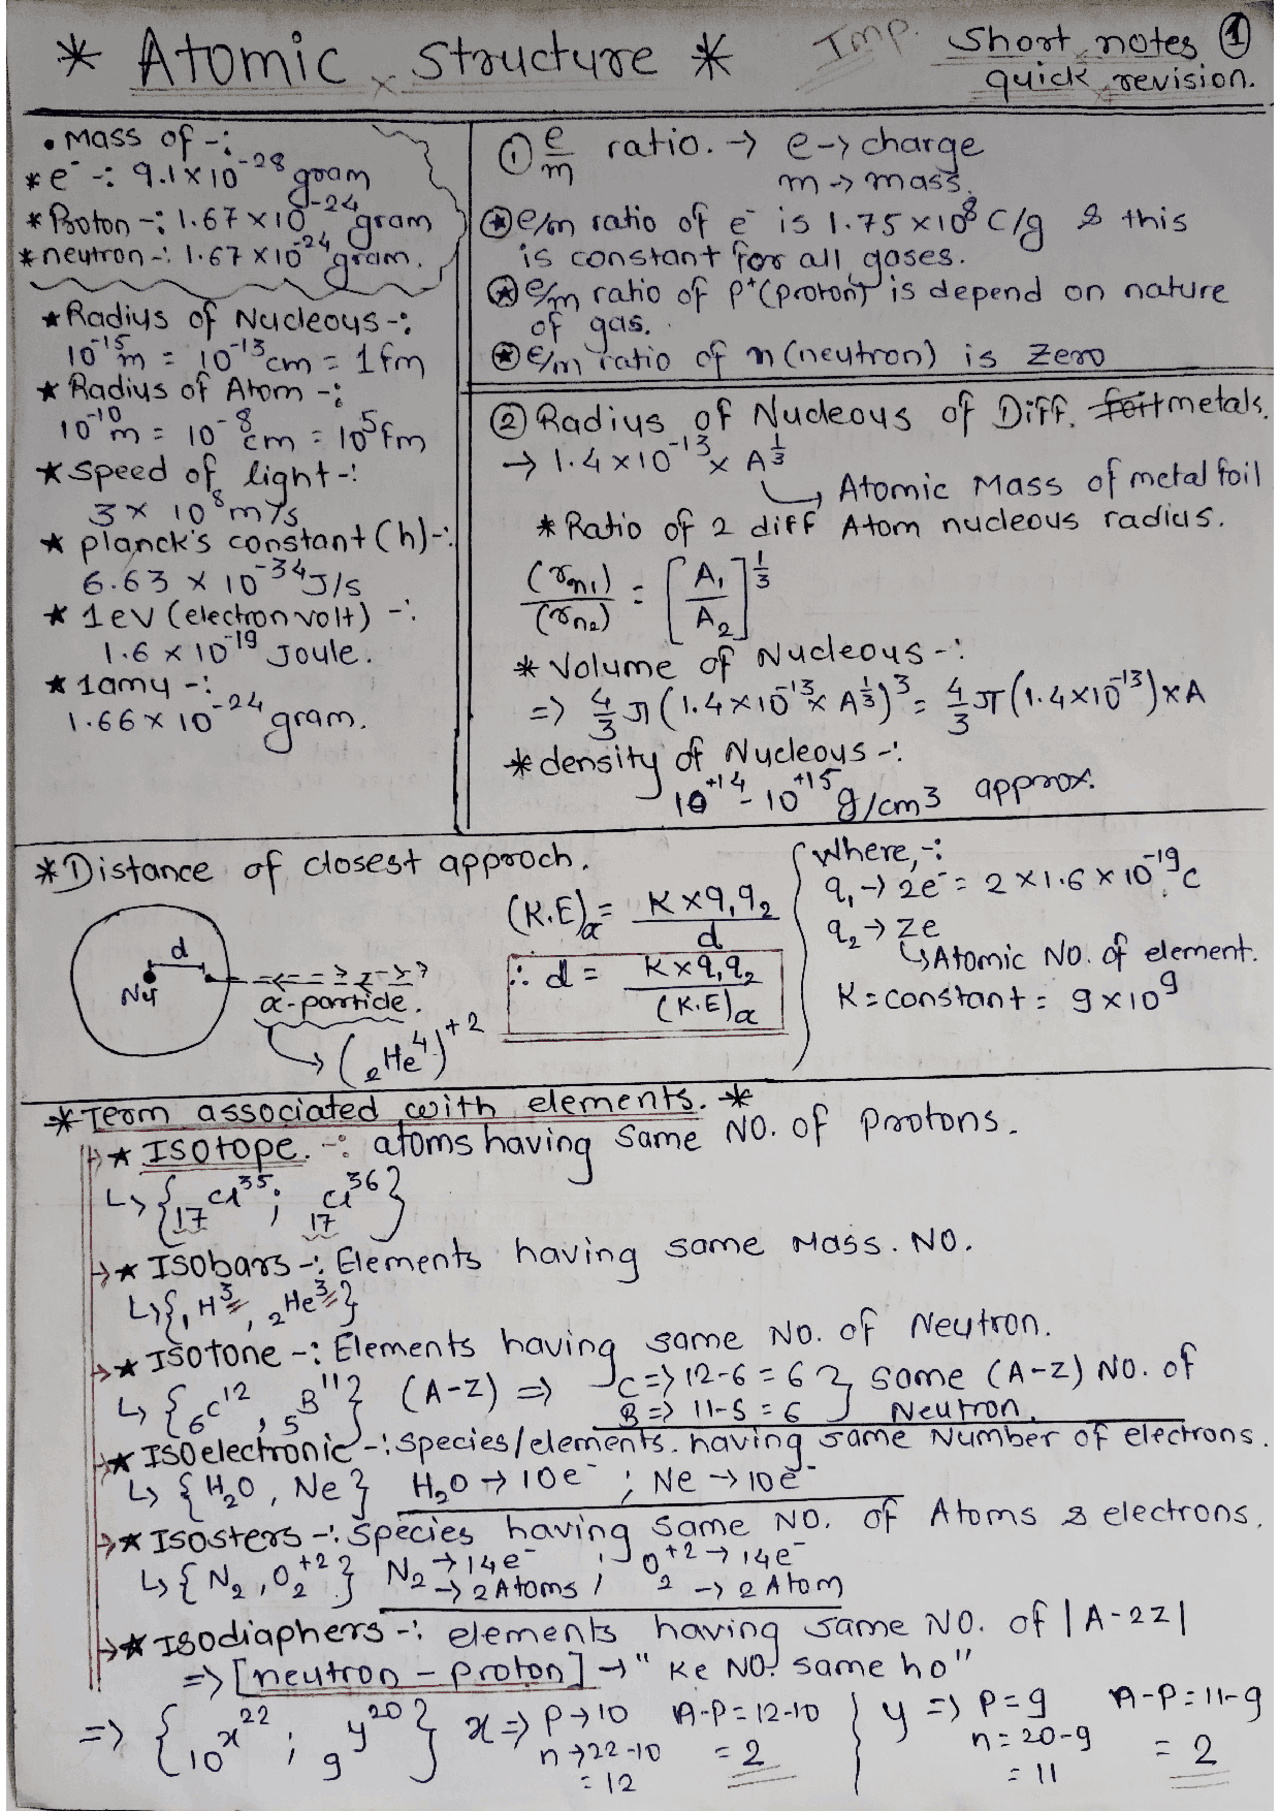 * Atomic Structure *
Imp.
Short notes ①
quick revision.
• Mass of -:
* e⁻ -: 9.1 x 10⁻²⁸ gram
* Proton -: 1.67 x 10⁻²⁴ gram
* neutron -: 1.67 x 10⁻²⁴ gram.
* Radius of Nucleous -:
10⁻¹⁵ m = 10⁻¹³ cm = 1 fm
* Radius of Atom -:
10⁻¹⁰ m = 10⁻⁸ cm = 10⁵ fm
* Speed of light -:
3 x 10⁸ m/s
* planck's constant (h) -:
6.63 x 10⁻³⁴ J/s
* 1ev (electron volt) -:
1.6 x 10⁻¹⁹ Joule.
* 1amu -:
1.66 x 10⁻²⁴ gram.
① e/m ratio. → e → charge
m → mass.
* e/m ratio of e⁻ is 1.75 x 10⁸ C/g & this
is constant for all gases.
* e/m ratio of p⁺ (proton) is depend on nature
of gas.
* e/m ratio of n (neutron) is Zero
② Radius of Nucleous of Diff. metals.
→ 1.4 x 10⁻¹³ x A^1/3
↳ Atomic Mass of metal foil
* Ratio of 2 diff Atom nucleous radius.
(rn₁)/(rn₂) = [A₁/A₂]^1/3
* Volume of Nucleous -:
=> 4/3 π (1.4 x 10⁻¹³ x A^1/3)³ = 4/3 π (1.4 x 10⁻¹³) x A
* density of Nucleous -:
10⁺¹⁴ - 10⁺¹⁵ g/cm3 approx.
* Distance of closest approch.
d
Nu
α-particle.
↳ (₂He⁴)⁺²
(K.E)α = K x q₁q₂ / d
∴ d = K x q₁q₂ / (K.E)α
Where, -:
q₁ → 2e⁻ = 2 x 1.6 x 10⁻¹⁹ c
q₂ → ze
↳ Atomic NO. of element.
K = constant = 9 x 10⁹
* Term associated with elements. *
* Isotope. -: atoms having same NO. of Protons.
↳ {₁₇Cl³⁵ ; ₁₇Cl³⁶}
* Isobars -: Elements having same Mass. NO.
↳ {₁H³ , ₂He³}
* Isotone -: Elements having same NO. of Neutron.
↳ {₆C¹² , ₅B¹¹} (A-Z) => C => 12-6 = 6 } same (A-Z) NO. of
B => 11-5 = 6 Neutron.
* ISOelectronic -: species/elements. having same Number of electrons.
↳ {H₂O , Ne} H₂O → 10e⁻ ; Ne → 10e⁻
* Isosters -: Species having same NO. of Atoms & electrons.
↳ {N₂ , O₂⁺²} N₂ → 14e⁻ ; O₂⁺² → 14e⁻
→ 2 Atoms → 2 Atom
* Isodiaphers -: elements having same NO. of |A-2Z|
=> [neutron - proton] → " Ke NO. same ho"
=> {₁₀x²² ; ₉y²⁰} x => P → 10 n-P = 12-10 y => P = 9 n-P = 11-9
n → 22-10 = 2 n = 20-9 = 2
= 12 = 11